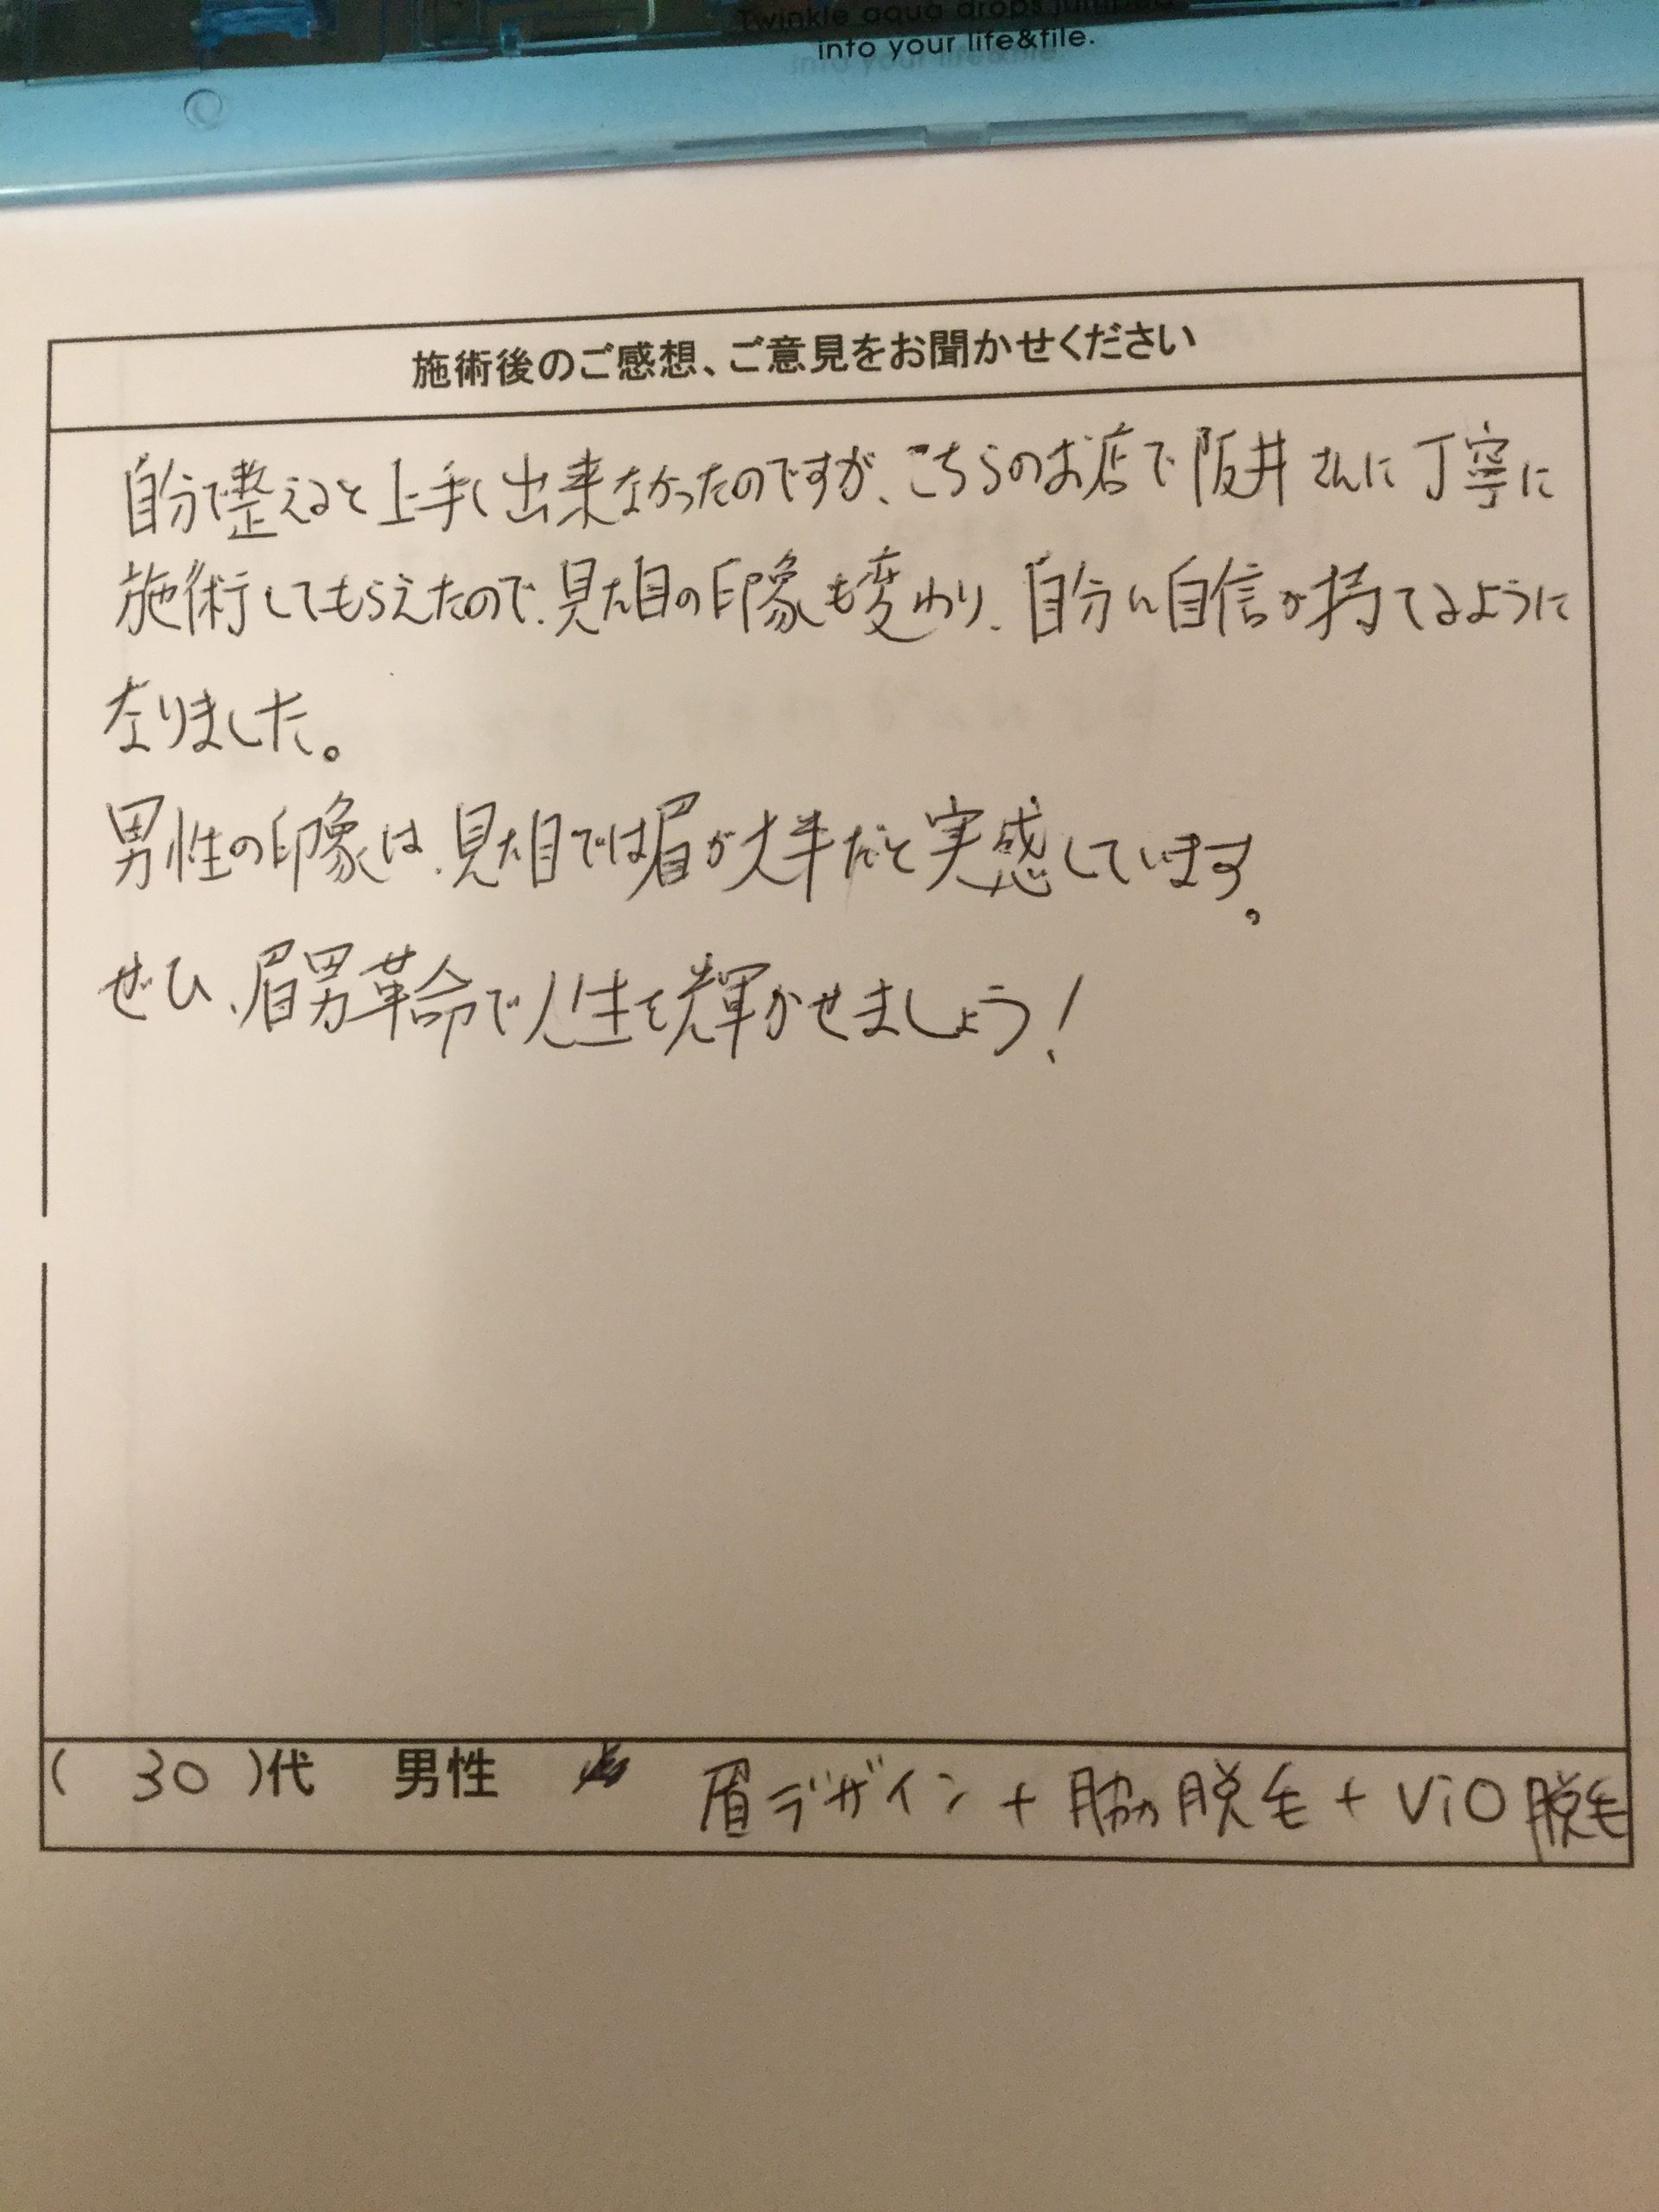 Twinkle aqua drops jumped
into your life&file.
施術後のご感想、ご意見をお聞かせください
自分で整えると上手く出来なかったのですが、こちらのお店で阪井さんに丁寧に
施術してもらえたので、見た目の印象も変わり、自分に自信が持てるように
なりました。
男性の印象は、見た目では眉が大半だと実感しています。
ぜひ、眉男革命で人生を輝かせましょう!
( 30 )代 男性 眉デザイン + 脇脱毛 + ViO脱毛